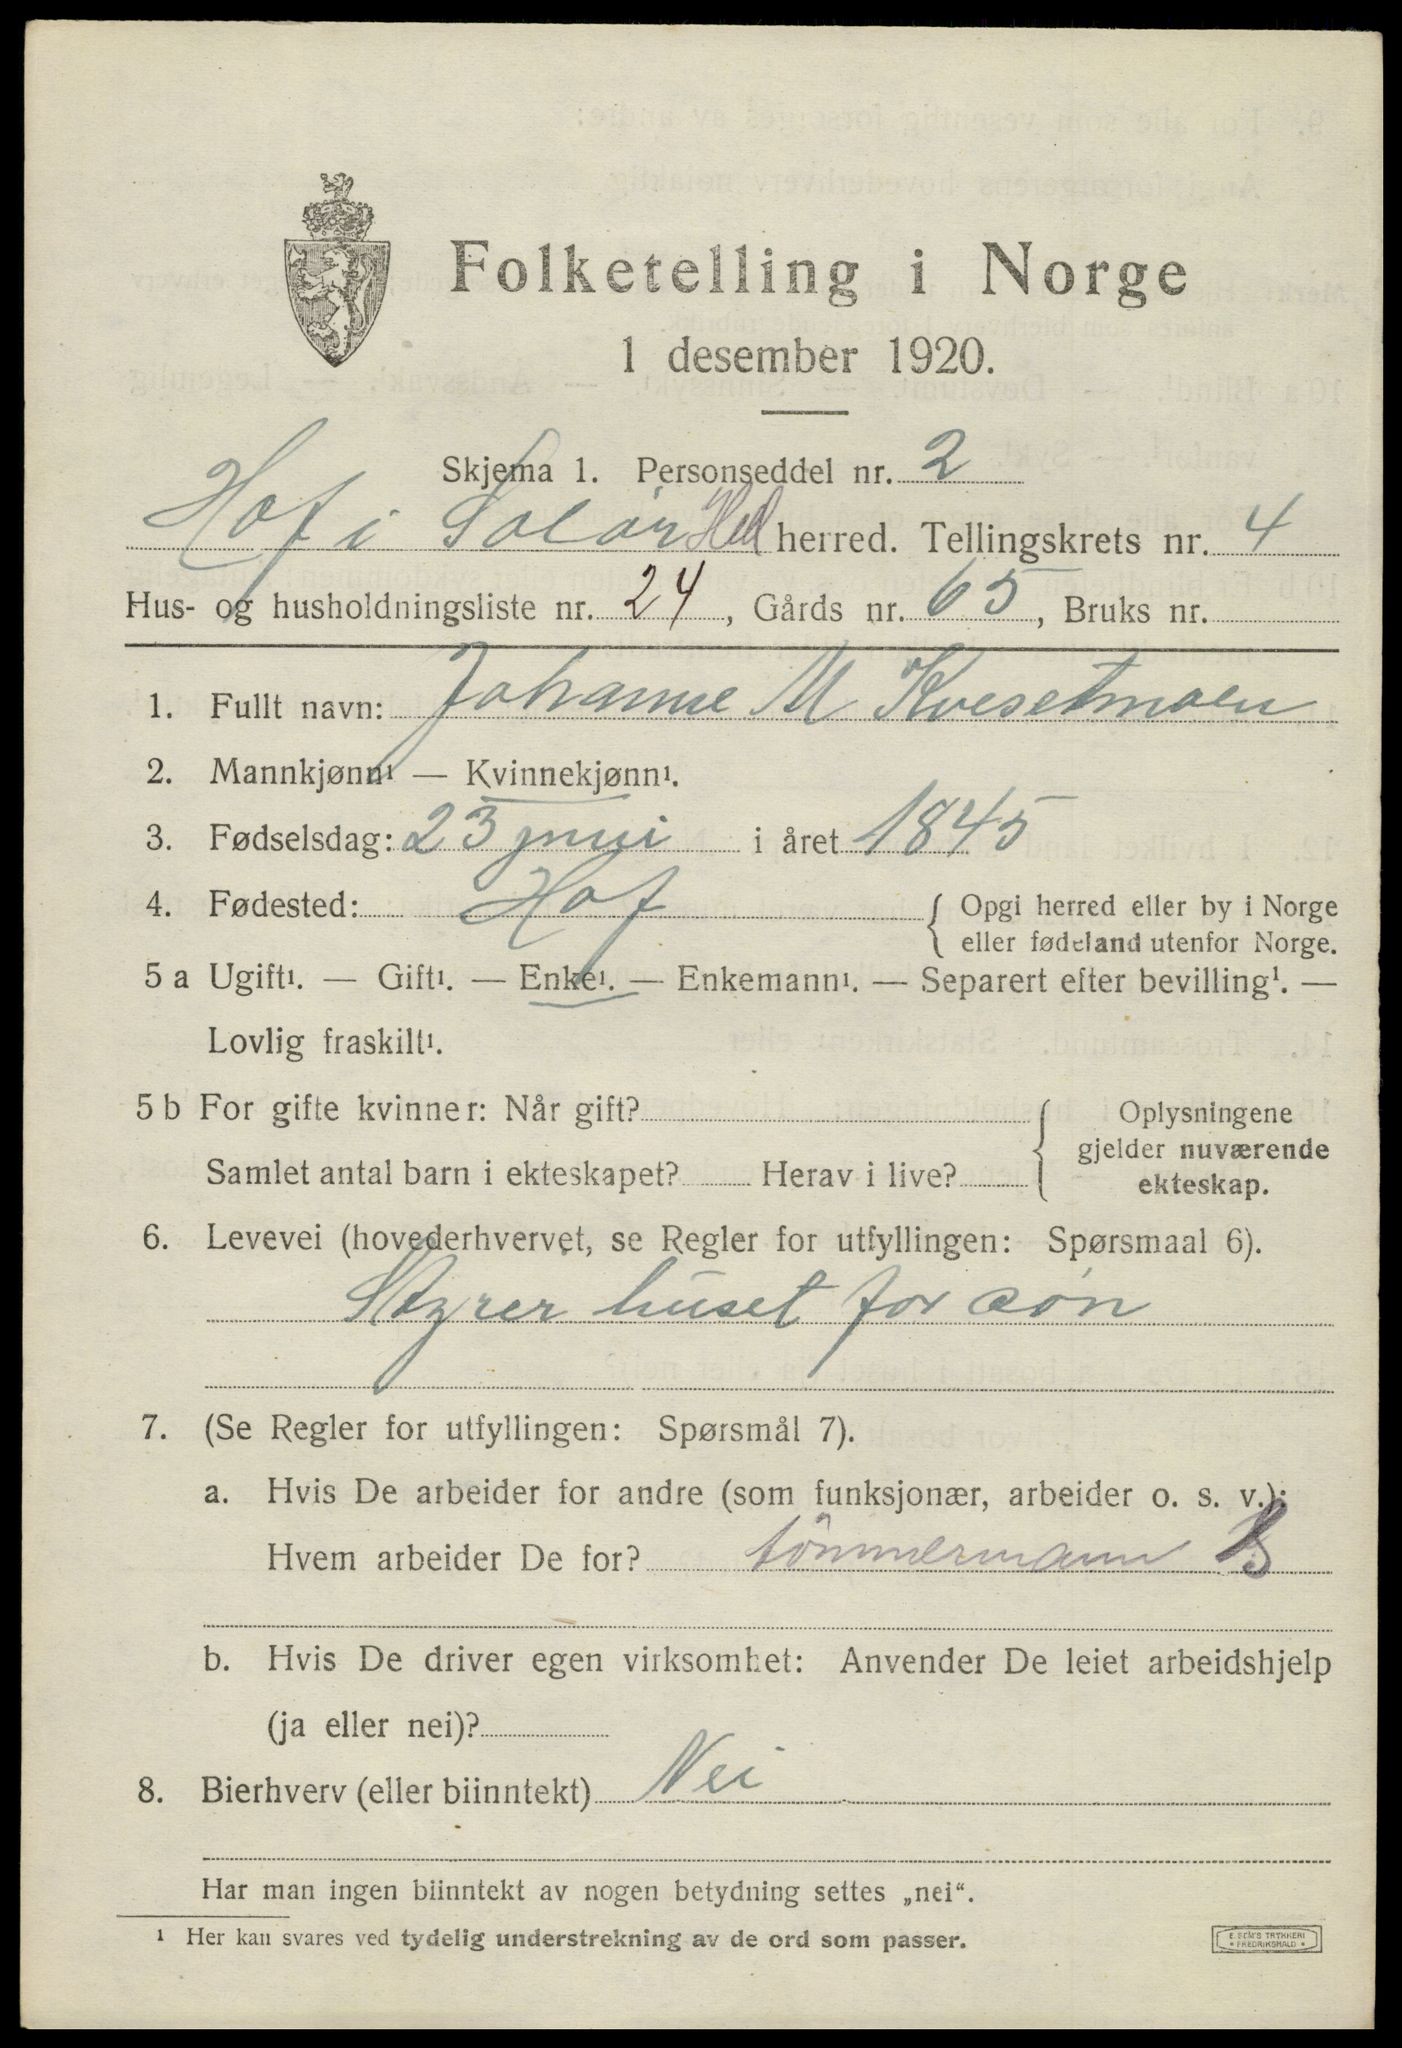 Folketelling i Norge
1 desember 1920.
Skjema 1. Personseddel nr. 2
Hof i Solør Hed herred. Tellingskrets nr. 4
Hus- og husholdningsliste nr. 24, Gårds nr. 65, Bruks nr.
1. Fullt navn: Johanne M Kvesetmoen
2. Mannkjønn¹ — Kvinnekjønn¹.
3. Fødselsdag: 23 juni i året 1845
4. Fødested: Hof { Opgi herred eller by i Norge
eller fødeland utenfor Norge.
5 a Ugift¹. — Gift¹. — Enke¹. — Enkemann¹. — Separert efter bevilling¹. —
Lovlig fraskilt¹.
5 b For gifte kvinner: Når gift? { Oplysningene
gjelder nuværende
Samlet antal barn i ekteskapet? Herav i live? ekteskap.
6. Levevei (hovederhvervet, se Regler for utfyllingen: Spørsmaal 6).
Styrer huset for søn
7. (Se Regler for utfyllingen: Spørsmål 7).
a. Hvis De arbeider for andre (som funksjonær, arbeider o. s. v.):
Hvem arbeider De for? tömmermann
b. Hvis De driver egen virksomhet: Anvender De leiet arbeidshjelp
(ja eller nei)?
8. Bierhverv (eller biinntekt) Nei
Har man ingen biinntekt av nogen betydning settes „nei“.
¹ Her kan svares ved tydelig understrekning av de ord som passer.
E. SEM'S TRYKKERI
• FREDRIKSHALD •